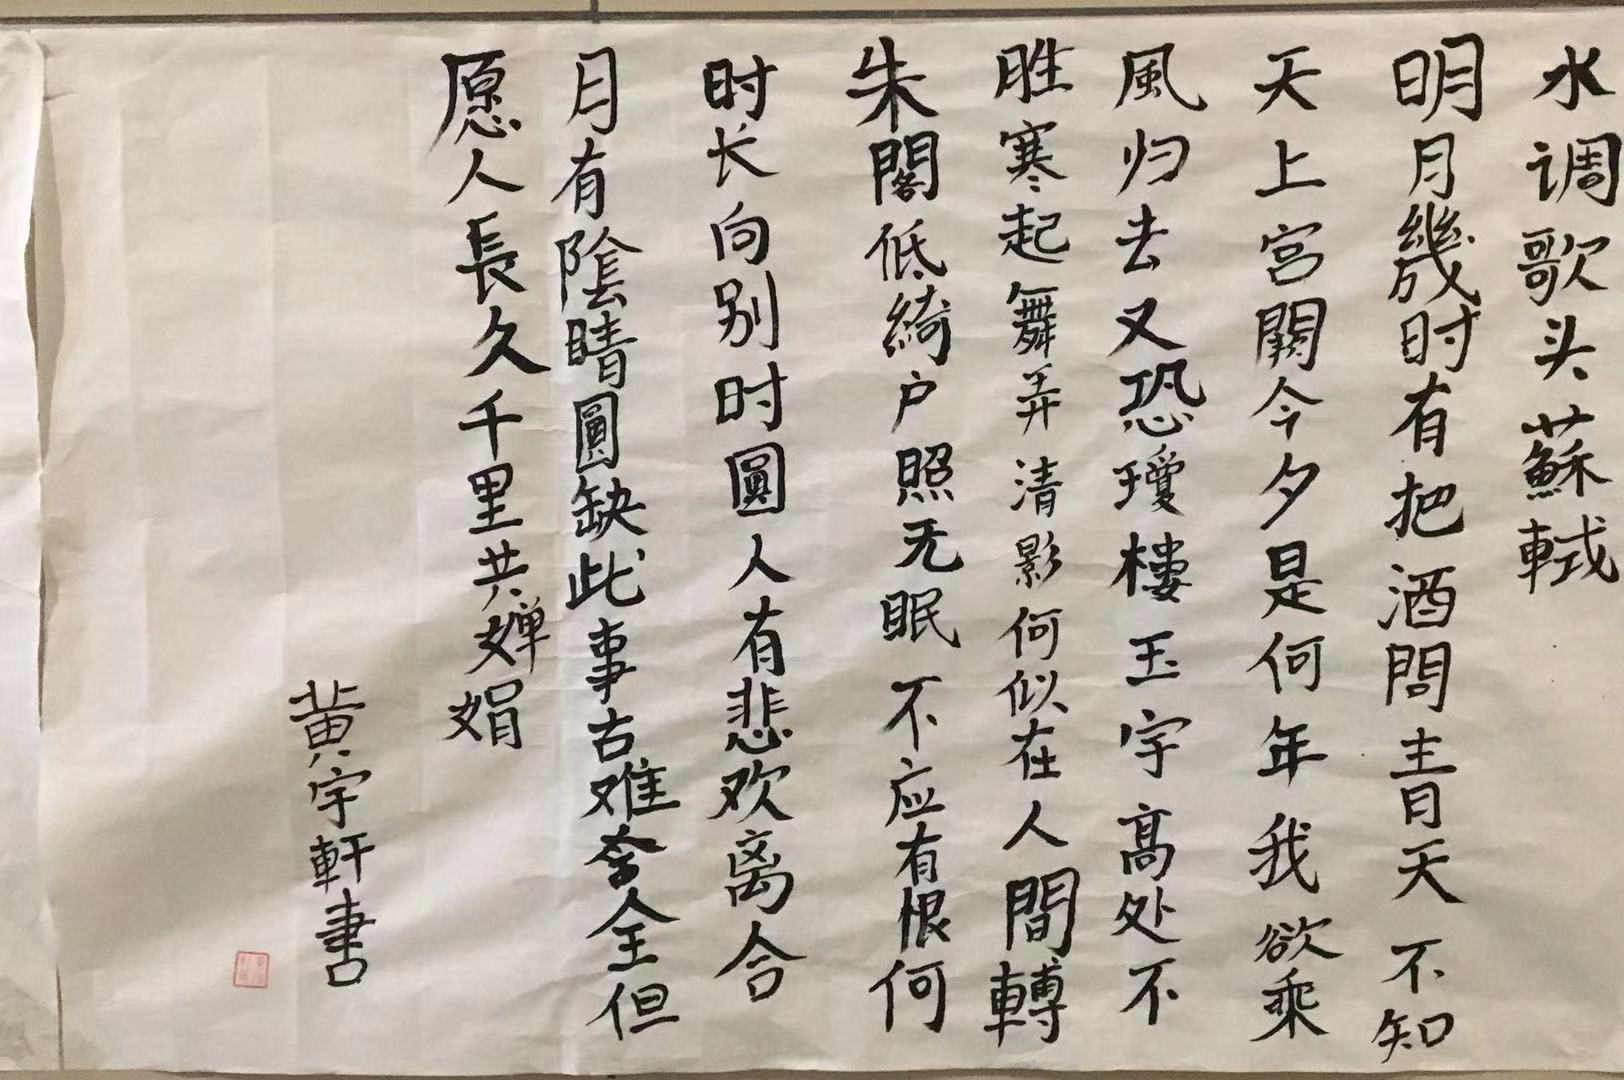 水调歌头蘇軾
明月幾时有把酒問青天不知
天上宫闕今夕是何年我欲乘
風归去又恐瓊樓玉宇高处不
胜寒起舞弄清影何似在人間轉
朱閣低綺户照无眠不应有恨何
时长向别时圓人有悲欢离合
月有陰晴圓缺此事古难全但
愿人長久千里共嬋娟
黄宇軒書